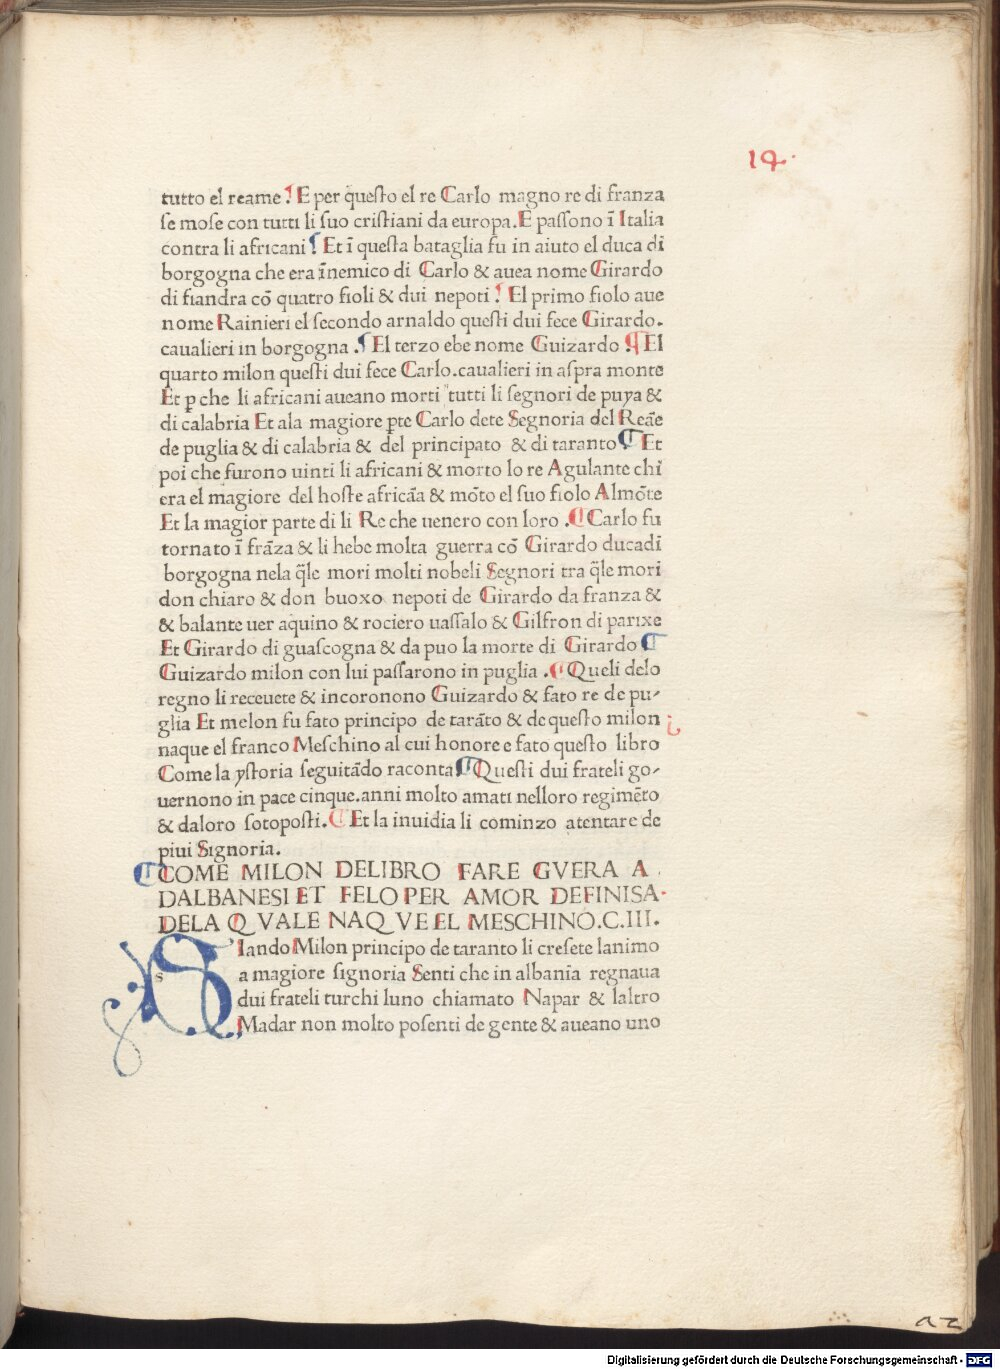 14.
tutto el reame ¶ E per q̃uesto el re Carlo magno re di franza
se mose con tutti li suo cristiani da europa. E passono ĩ Italia
contra li africani ¶ Et ĩ questa bataglia fu in aiuto el duca di
borgogna che era ĩnemico di Carlo & auea nome Girardo
di fiandra cõ quatro fioli & dui nepoti ¶ El primo fiolo aue
nome Rainieri el secondo arnaldo questi dui fece Girardo.
caualieri in borgogna .¶ El terzo ebe nome Guizardo ¶ El
quarto milon questi dui fece Carlo.caualieri in aspra monte
Et ꝑ che li africani aueano morti tutti li segnori de puya &
di calabria Et ala magiore ꝑte Carlo dete Segnoria del Reãe
de puglia & di calabria & del principato & di taranto ¶ Et
poi che furono uinti li africani & morto lo re Agulante chi
era el magiore del hoste africãa & mõto el suo fiolo Almõte
Et la magior parte di li Re che uenero con loro .¶ Carlo fu
tornato ĩ frãza & li hebe molta guerra cõ Girardo ducadi
borgogna nela q̃le mori molti nobeli Segnori tra q̃le mori
don chiaro & don buoxo nepoti de Girardo da franza &
& balante uer aquino & rociero uassalo & Gilfron di parixe
Et Girardo di guascogna & da puo la morte di Girardo ¶
Guizardo milon con lui passarono in puglia .¶ Queli delo
regno li receuete & incoronono Guizardo & fato re de pu-
glia Et melon fu fato principo de tarãto & de questo milon
naque el franco Meschino al cui honore e fato questo libro
Come la ystoria seguitãdo raconta ¶ Questi dui frateli go-
uernono in pace cinque.anni molto amati nelloro regimẽto
& daloro sotoposti. ¶ Et la inuidia li cominzo atentare de
piui Signoria.
¶ COME MILON DELIBRO FARE GVERA A .
DALBANESI ET FELO PER AMOR DEFINISA.
DELA Q VALE NAQ VE EL MESCHINO.C.III.
S Iando Milon principo de taranto li cresete lanimo
a magiore signoria Senti che in albania regnaua
dui frateli turchi luno chiamato Napar & laltro
Madar non molto posenti de gente & aueano uno
a 2
Digitalisierung gefördert durch die Deutsche Forschungsgemeinschaft - DFG